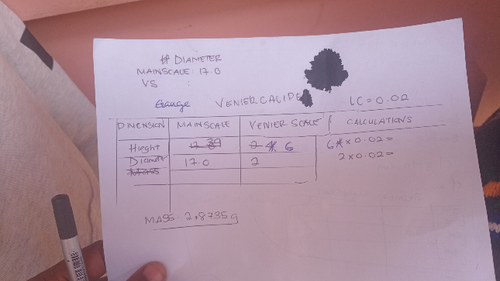 DIAMETER
MAINSCALE 17.0
VS
Gauge VENIER CALIPE LC = 0.02
DIMENSION MAINSCALE VENIER SCALE CALCULATIONS
Hieght 39 6 6 x 0.02 =
Diamete 17.0 2 2 x 0.02 =
Mass
MASS 2.8735 g